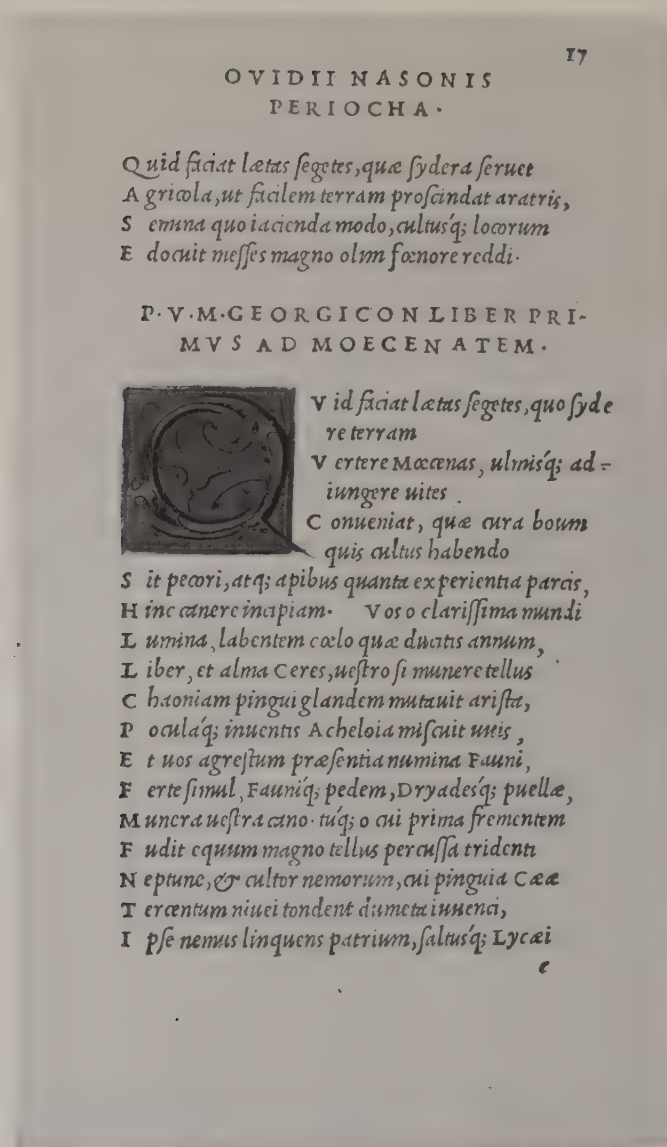 17
OVIDII NASONIS
PERIOCHA.
Quid faciat lætas ſegetes, quæ ſydera ſeruet
Agricola, ut facilem terram proſcindat aratris,
Semina quo iacienda modo, cultusq́; locorum
Edocuit meſſes magno olim fœnore reddi.
P. V. M. GEORGICON LIBER PRI-
MVS AD MOECENATEM.
QVid faciat lætas ſegetes, quo ſyde
re terram
Vertere Mœcenas, ulmisq́; ad-
iungere uites.
Conueniat, quæ cura boum
quis cultus habendo
Sit pecori, atq; apibus quanta experientia parcis,
Hinc canere incipiam. Vos o clariſſima mundi
Lumina, labentem cœlo quæ ducitis annum,
Liber, et alma Ceres, ueſtro ſi munere tellus
Chaoniam pingui glandem mutauit ariſta,
Poculaq́; inuentis Acheloia miſcuit uuis,
Et uos agreſtum præſentia numina Fauni,
Ferte ſimul, Fauniq́; pedem, Dryadesq́; puellæ,
Munera ueſtra cano. tuq́; o cui prima frementem
Fudit equum magno tellus percuſſa tridenti
Neptune, & cultor nemorum, cui pinguia Cææ
Tercentum niuei tondent dumeta iuuenci,
Ipſe nemus linquens patrium, ſaltusq́; Lycæi
c